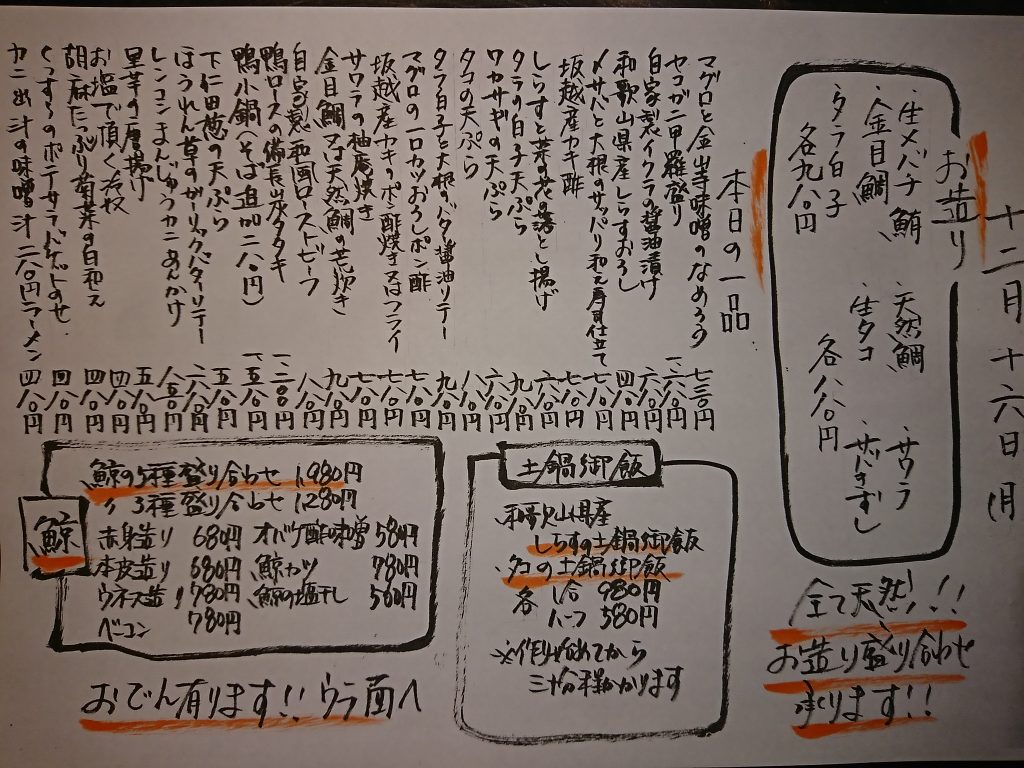 十二月十六日(月)
お造り
・生メバチ鮪 ・天然鯛 ・サワラ
・金目鯛 ・生タコ ・サバきずし
・タラ白子 各八八〇円
各九八〇円
全て天然!!!
お造り盛り合わせ
承ります!!
本日の一品
マグロと金山寺味噌のなめろう 七三〇円
セコガニ甲羅盛り
自家製イクラの醤油漬け 六八〇円
和歌山県産しらすおろし 四八〇円
〆サバと大根のサッパリ和え 七八〇円
坂越産カキ酢 七八〇円
しらすと菜の花の落とし揚げ 六八〇円
タラの白子天ぷら 九八〇円
ワカサギの天ぷら 六八〇円
タコの天ぷら 八八〇円
タラ白子と大根のバタ醤油ソテー 九八〇円
マグロの一口カツおろしポン酢 七八〇円
坂越産カキのポン酢焼き又はフライ 七八〇円
サワラの柚庵焼き 七八〇円
金目鯛又は天然鯛の荒炊き 九八〇円
自家製和風ローストビーフ 八八〇円
鴨ロースの備長炭タタキ 一、二〇〇円
鴨小鍋(そば追加二八〇円) 一、五八〇円
下仁田葱の天ぷら 五八〇円
ほうれん草のガーリックバタソテー 六八〇円
レンコンまんじゅうカニあんかけ 八五〇円
里芋の唐揚げ 五八〇円
お塩で頂く 四八〇円
胡麻たっぷり菊菜の白和え 四八〇円
ポテサラバゲットのせ 四八〇円
カニ出汁の味噌汁 二八〇円ラーメン 四八〇円
土鍋御飯
・和歌山県産
しらすの土鍋御飯
・タコの土鍋御飯
各 1合 980円
ハーフ 580円
※作り始めてから
三十分程かかります
鯨
・鯨の5種盛り合わせ 1,980円
・〃3種盛り合わせ 1,280円
・赤身造り 680円 ・オバケ酢味噌 580円
・本皮造り 680円 ・鯨カツ 780円
・ウネス造り 780円 ・鯨の塩干し 500円
・ベーコン 780円
おでん有ります!! ウラ面へ